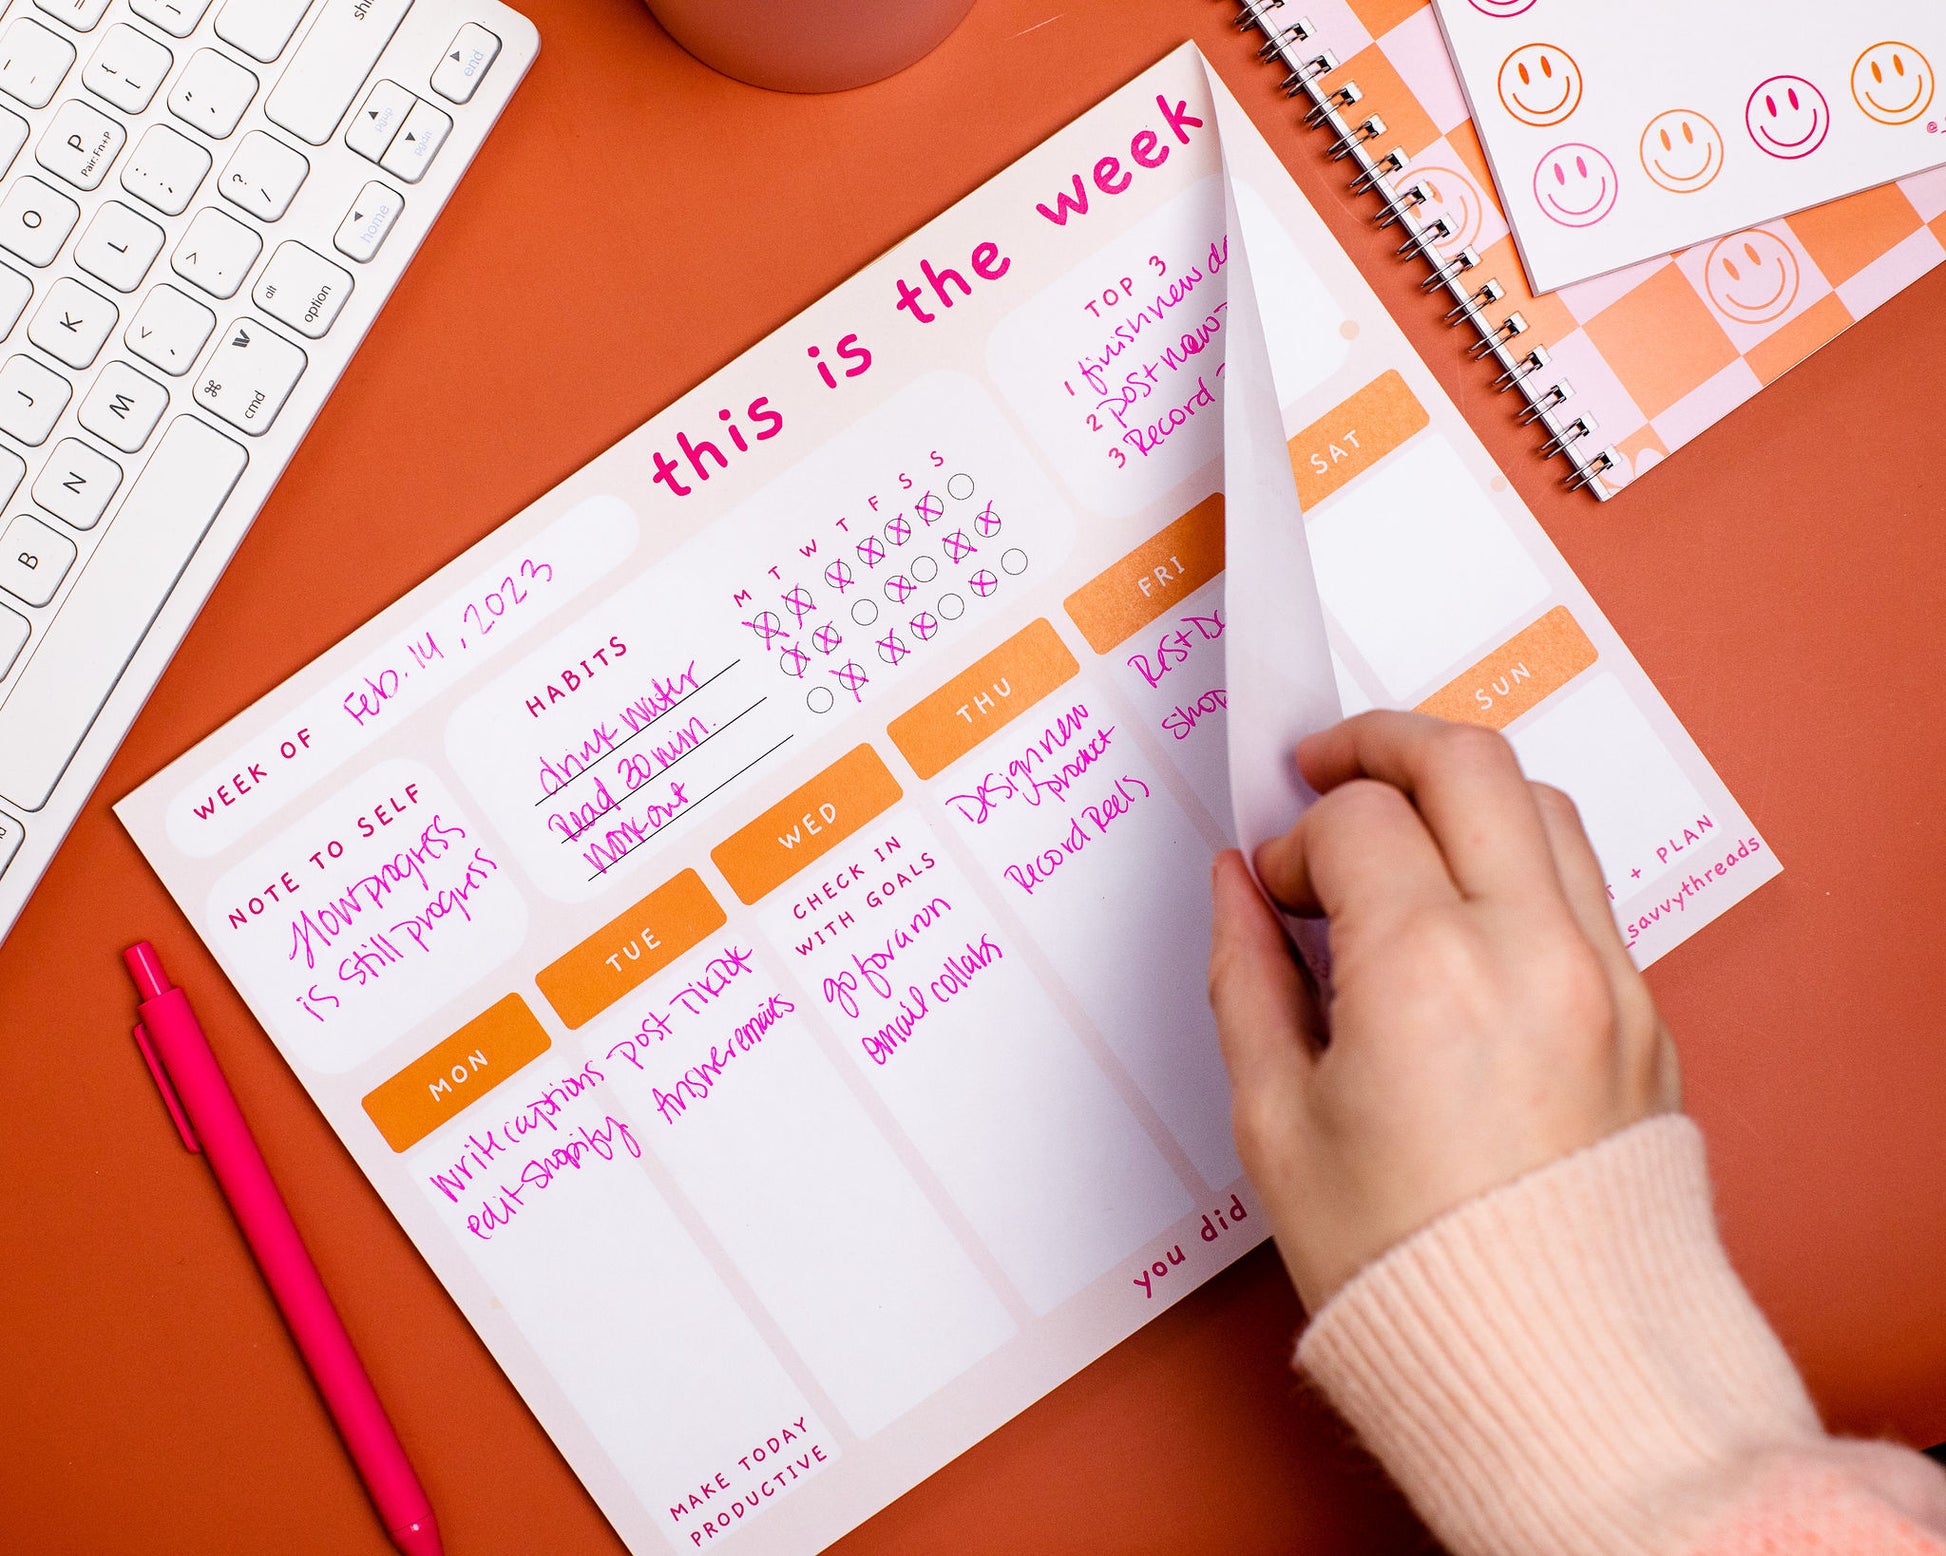 this is the week
WEEK OF Feb. 14, 2023
NOTE TO SELF
Slow progress
is still progress
HABITS
M T W T F S S
drink water
Read 30 min.
Workout
TOP 3
1 finish new
2 post new
3 Record
MON
Write captions
edit Shopify
MAKE TODAY
PRODUCTIVE
TUE
Post TikTok
Answer emails
WED
CHECK IN
WITH GOALS
go for a run
email collabs
THU
Design new
product
Record Reels
FRI
Rest
Shop
SAT
SUN
+ PLAN
you did
_savvythreads
shi
end
pgup
pgdn
home
P
Pair: Fn+P
O
L
K
J
M
N
B
alt
option
cmd